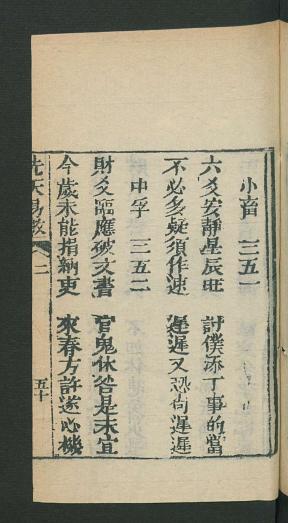 小畜 三五一
六爻安靜星辰旺 討僕添丁事的當
不必多疑須作速 遲遲又恐尚遲遲
中孚 三五二
財爻臨應破文書 官鬼休咎是未宜
今歲未能捐納吏 來春方許遂心機
先天易數 二 五十